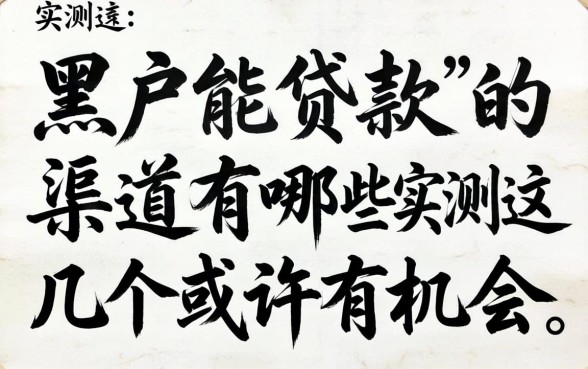 实测这:
黑户能贷款”的
渠道有哪些实测这
几个或许有机会。